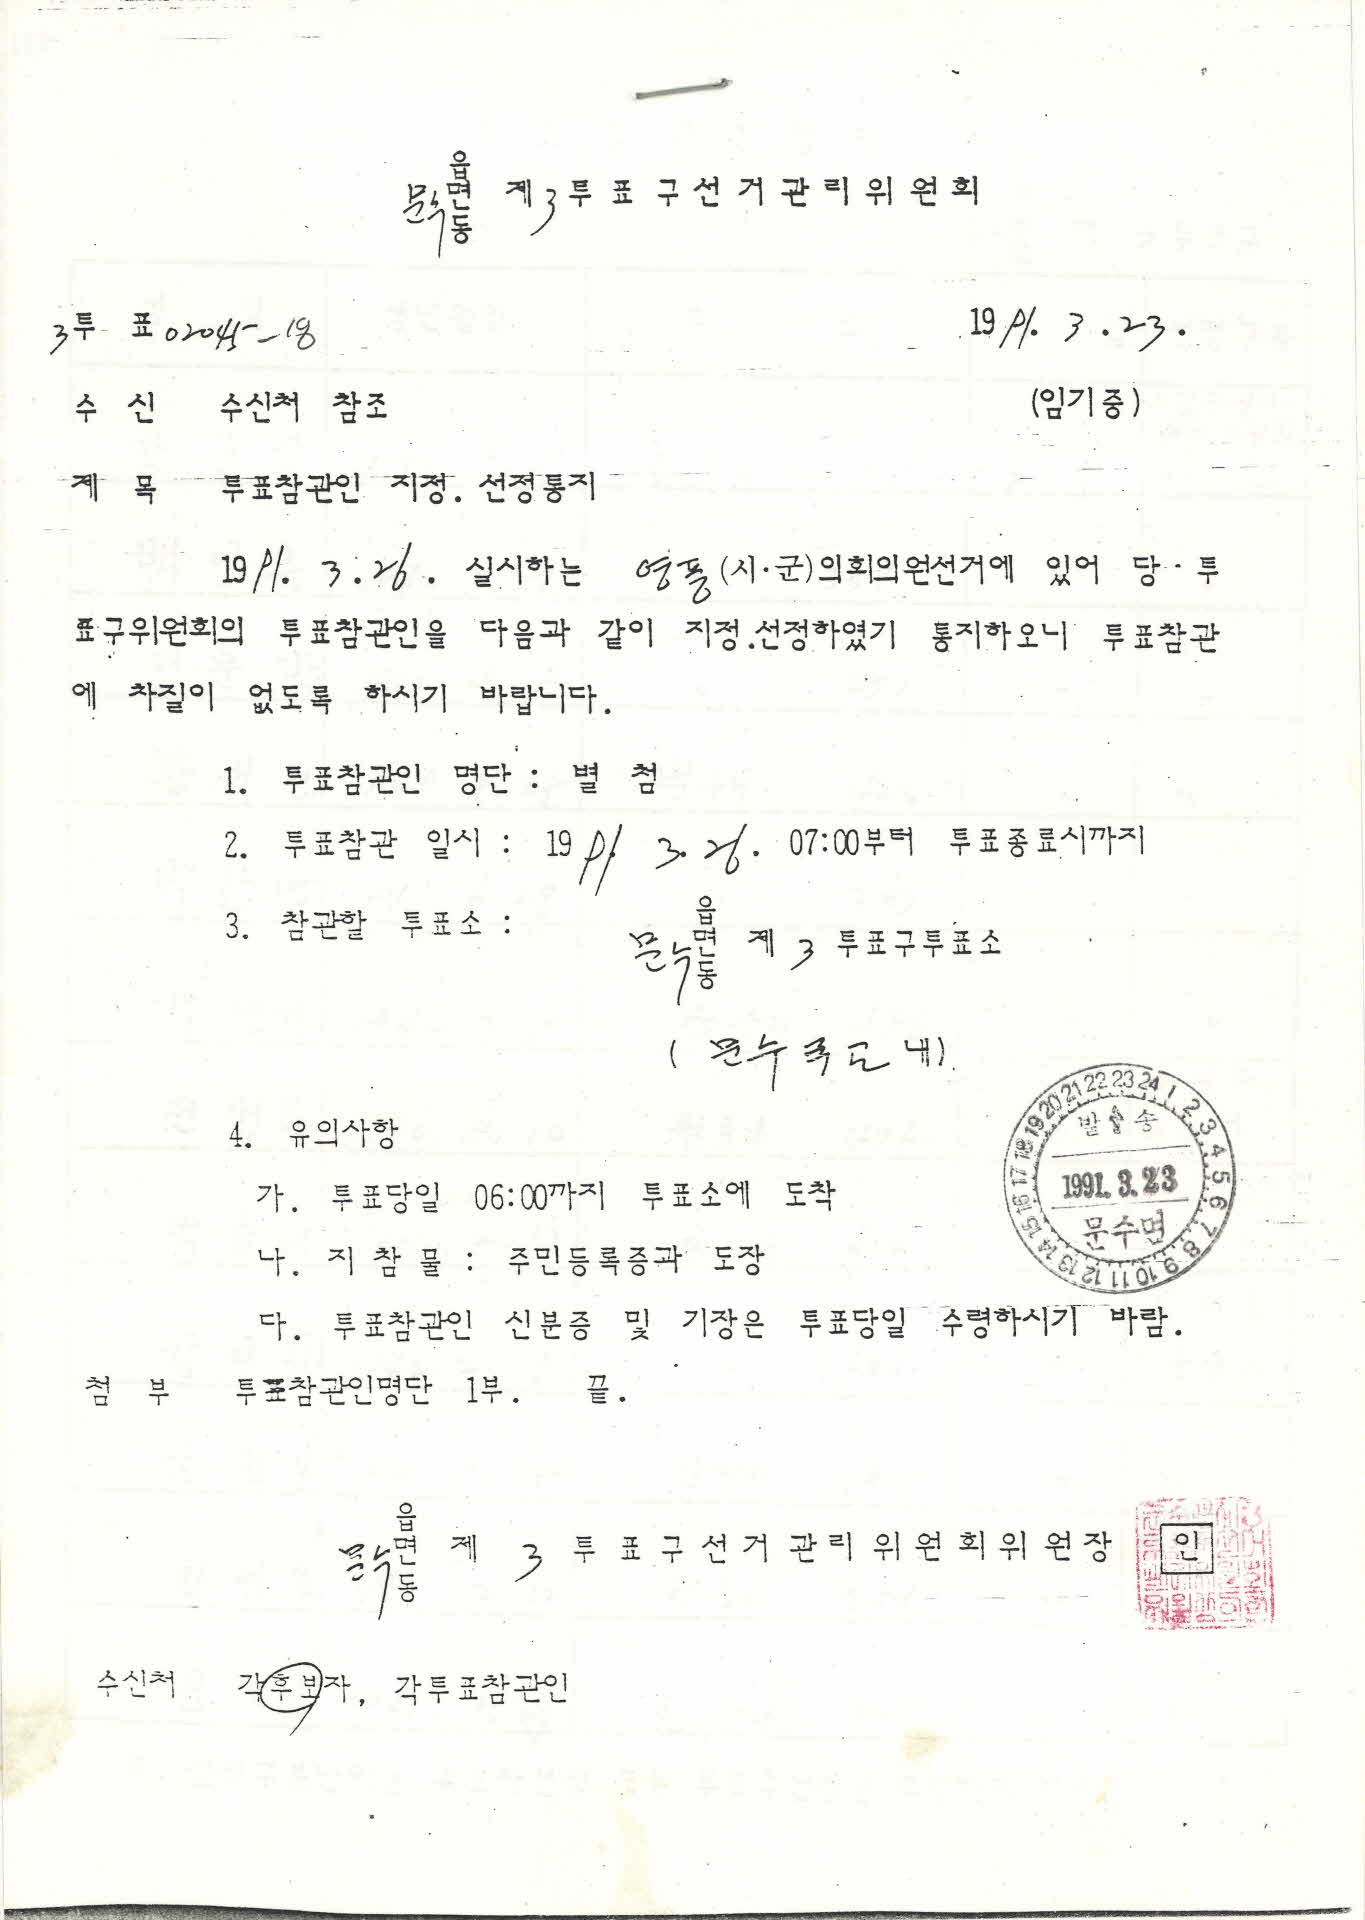 문수 읍면동 제3투표구선거관리위원회
3투 표 02045-18 1991. 3. 23.
수 신 수신처 참조 (임기중)
제 목 투표참관인 지정. 선정통지
1991. 3. 26. 실시하는 영풍(시·군)의회의원선거에 있어 당·투
표구위원회의 투표참관인을 다음과 같이 지정.선정하였기 통지하오니 투표참관
에 차질이 없도록 하시기 바랍니다.
1. 투표참관인 명단 : 별 첨
2. 투표참관 일시 : 1991. 3. 26. 07:00부터 투표종료시까지
3. 참관할 투표소 : 문수 읍면동 제 3 투표구투표소
(문수국교내)
4. 유의사항
가. 투표당일 06:00까지 투표소에 도착
나. 지 참 물 : 주민등록증과 도장
다. 투표참관인 신분증 및 기장은 투표당일 수령하시기 바람.
1 2 3 4 5 6 7 8 9 10 11 12 13 14 15 16 17 18 19 20 21 22 23 24
발송
1991. 3. 23
문수면
첨 부 투표참관인명단 1부. 끝.
문수 읍면동 제 3 투표구선거관리위원회위원장 인
수신처 각후보자, 각투표참관인